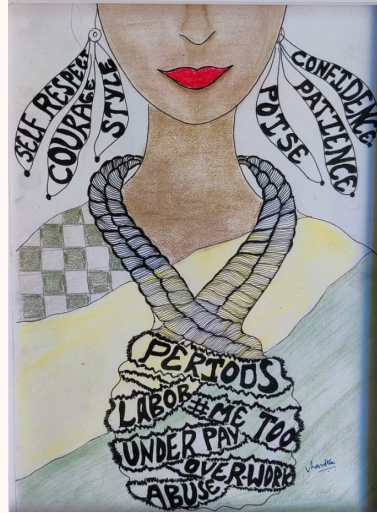 SELF RESPECT
COURAGE
STYLE
POISE
PATIENCE
CONFIDENCE
PERIODS
LABOR
#ME TOO
UNDER PAY
OVERWORK
ABUSE